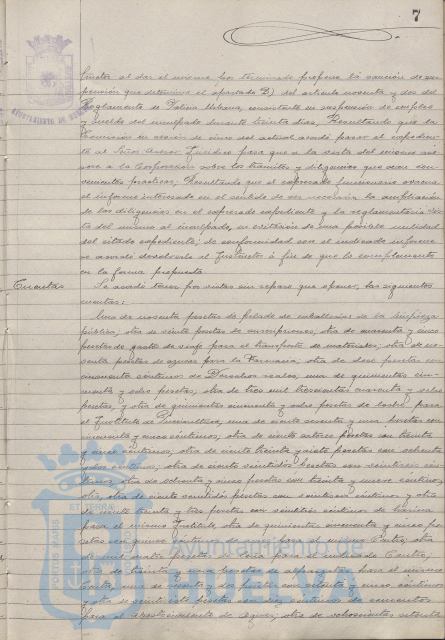 7
tructor al dar el mismo por terminado propone la sanción de sus-
pensión que determina el apartado D) del artículo noventa y dos del
Reglamento de Policía Urbana, consistente en suspensión de empleo
y sueldo del inculpado durante treinta días, Resultando que la
Comisión en sesión de cinco del actual acordó pasar el expedien-
te al Señor Asesor Jurídico para que a la vista del mismo infor-
mase a la Corporación sobre los trámites y diligencias que sean con-
venientes practicar; Resultando que el expresado funcionario evacua
el informe interesado en el sentido de ser necesaria la ampliación
de las diligencias en el expresado expediente y la reglamentaria vis-
ta del mismo al inculpado, en evitación de una posible nulidad
del citado expediente; de conformidad con el indicado informe
se acordó devolverlo al Instructor a fin de que lo complemente
en la forma propuesta
Cuentas Se acordó tener por vistas sin reparo que oponer, las siguientes
cuentas:
Una de noventa pesetas de pelado de caballerías de la limpieza
pública; otra de veinte pesetas de suscripciones, otra de cuarenta y cinco
pesetas de gastos de viaje para el transporte de materiales; otra de
pesetas de azucar para la Farmacia; otra de doce pesetas con
cincuenta céntimos de Derechos reales, una de quinientas cin-
cuenta y ocho pesetas, otra de tres mil trescientas cuarenta y ocho
pesetas, y otra de quinientas cincuenta y ocho pesetas de para
el Instituto de Puericultura, una de ciento sesenta y una pesetas con
cincuenta y cinco céntimos, otra de ciento catorce pesetas con treinta
y cinco céntimos; otra de ciento treinta y siete pesetas con ochenta
y dos céntimos; otra de ciento veintidos pesetas con veintiseis cén-
timos, otra de ochenta y cinco pesetas con treinta y nueve céntimos,
otra de ciento veintidós pesetas con céntimos y otra
de ciento treinta y tres pesetas con veintitrés céntimos de harina
para el mismo Instituto, otra de quinientas cincuenta y cinco pe-
setas con céntimos de para el mismo Centro, otra
de mil cuatro pesetas de para el indicado Centro,
otra de treinta y una pesetas de alpargatas para el mismo
Centro, una de y dos pesetas con ochenta y cinco céntimos
y otra de veintisiete pesetas con diez céntimos de
para el abastecimiento de aguas, otra de ochocientas setenta
AYUNTAMIENTO DE HUELVA
PORTUS MARIS ET TERRAE
Ayuntamiento de
HUELVA